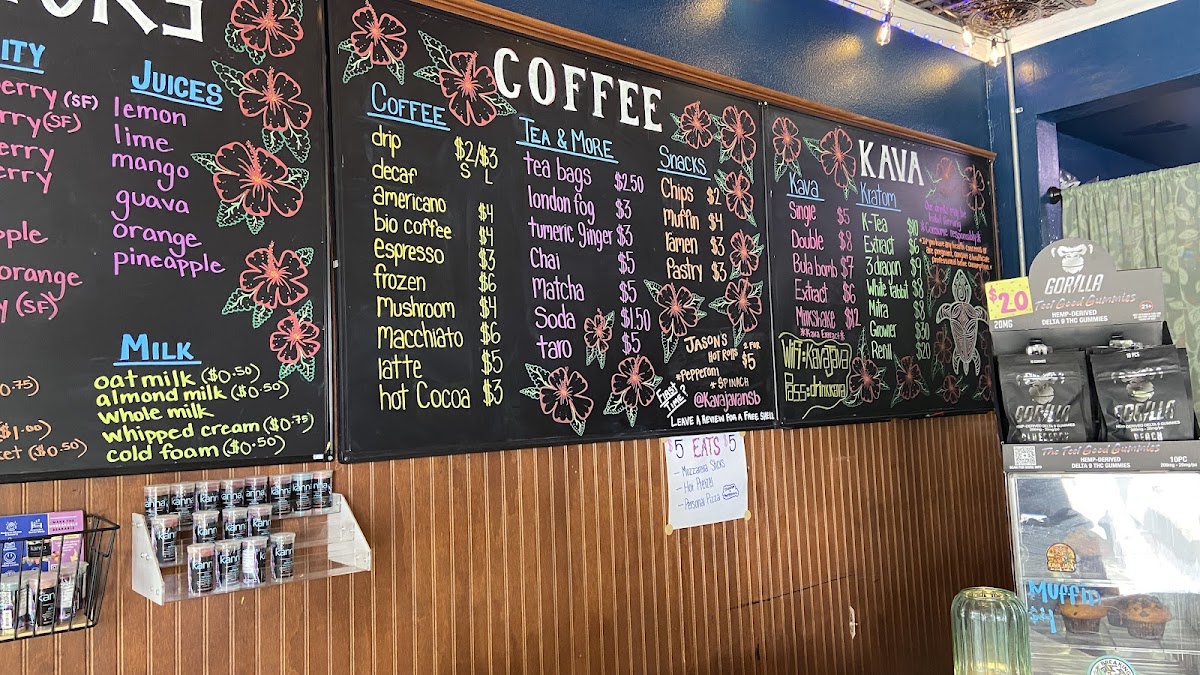 ITY
erry (SF)
rry (SF)
erry
erry
pple
orange
y (SF)
0.75)
$1.00)
ket ($0.50)
JUICES
lemon
lime
mango
guava
orange
pineapple
MILK
oat milk ($0.50)
almond milk ($0.50)
whole milk
whipped cream ($0.75)
cold foam ($0.50)
COFFEE
COFFEE
drip $2/$3
decaf S L
americano $4
bio coffee $4
espresso $3
frozen $6
Mushroom $4
Macchiato $6
latte $5
hot Cocoa $3
TEA & MORE
tea bags $2.50
london fog $3
tumeric ginger $3
Chai $5
Matcha $5
Soda $1.50
taro $5
SNACKS
Chips $2
Muffin $4
ramen $3
Pastry $3
JASON'S
HOT ROLLS 2 FOR $5
*Pepperoni
*Spinach
@Kavajavansb
FIRST TIME?
LEAVE A REVIEW FOR A FREE SHELL
KAVA
Kava
Single $5
Double $8
Bula bomb $7
Extract $6
Milkshake $12
*Kava Extract*
Wifi: Kavajava
Pass: drinkkava
Kratom
K-Tea $10
Extract $6
3 dragon $9
White rabbit $8
Mitra $8
Grower $30
$20
$5 EATS $5
- Mozzarella Sticks
- Hot Pretzel
- Personal Pizza
$20
20MG
GORILLA
Feel Good Gummies
21+
HEMP-DERIVED
DELTA 9 THC GUMMIES
10 PCS
GORILLA
BLUEBERRY
GORILLA
PEACH
The Feel Good Gummies
HEMP-DERIVED
DELTA 9 THC GUMMIES
10PC
MUFFIN
$4
kanna